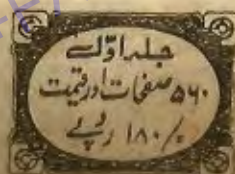 جلد اوّل
۵۶۰ صفحات اور قیمت
-/۱۸۰ روپے